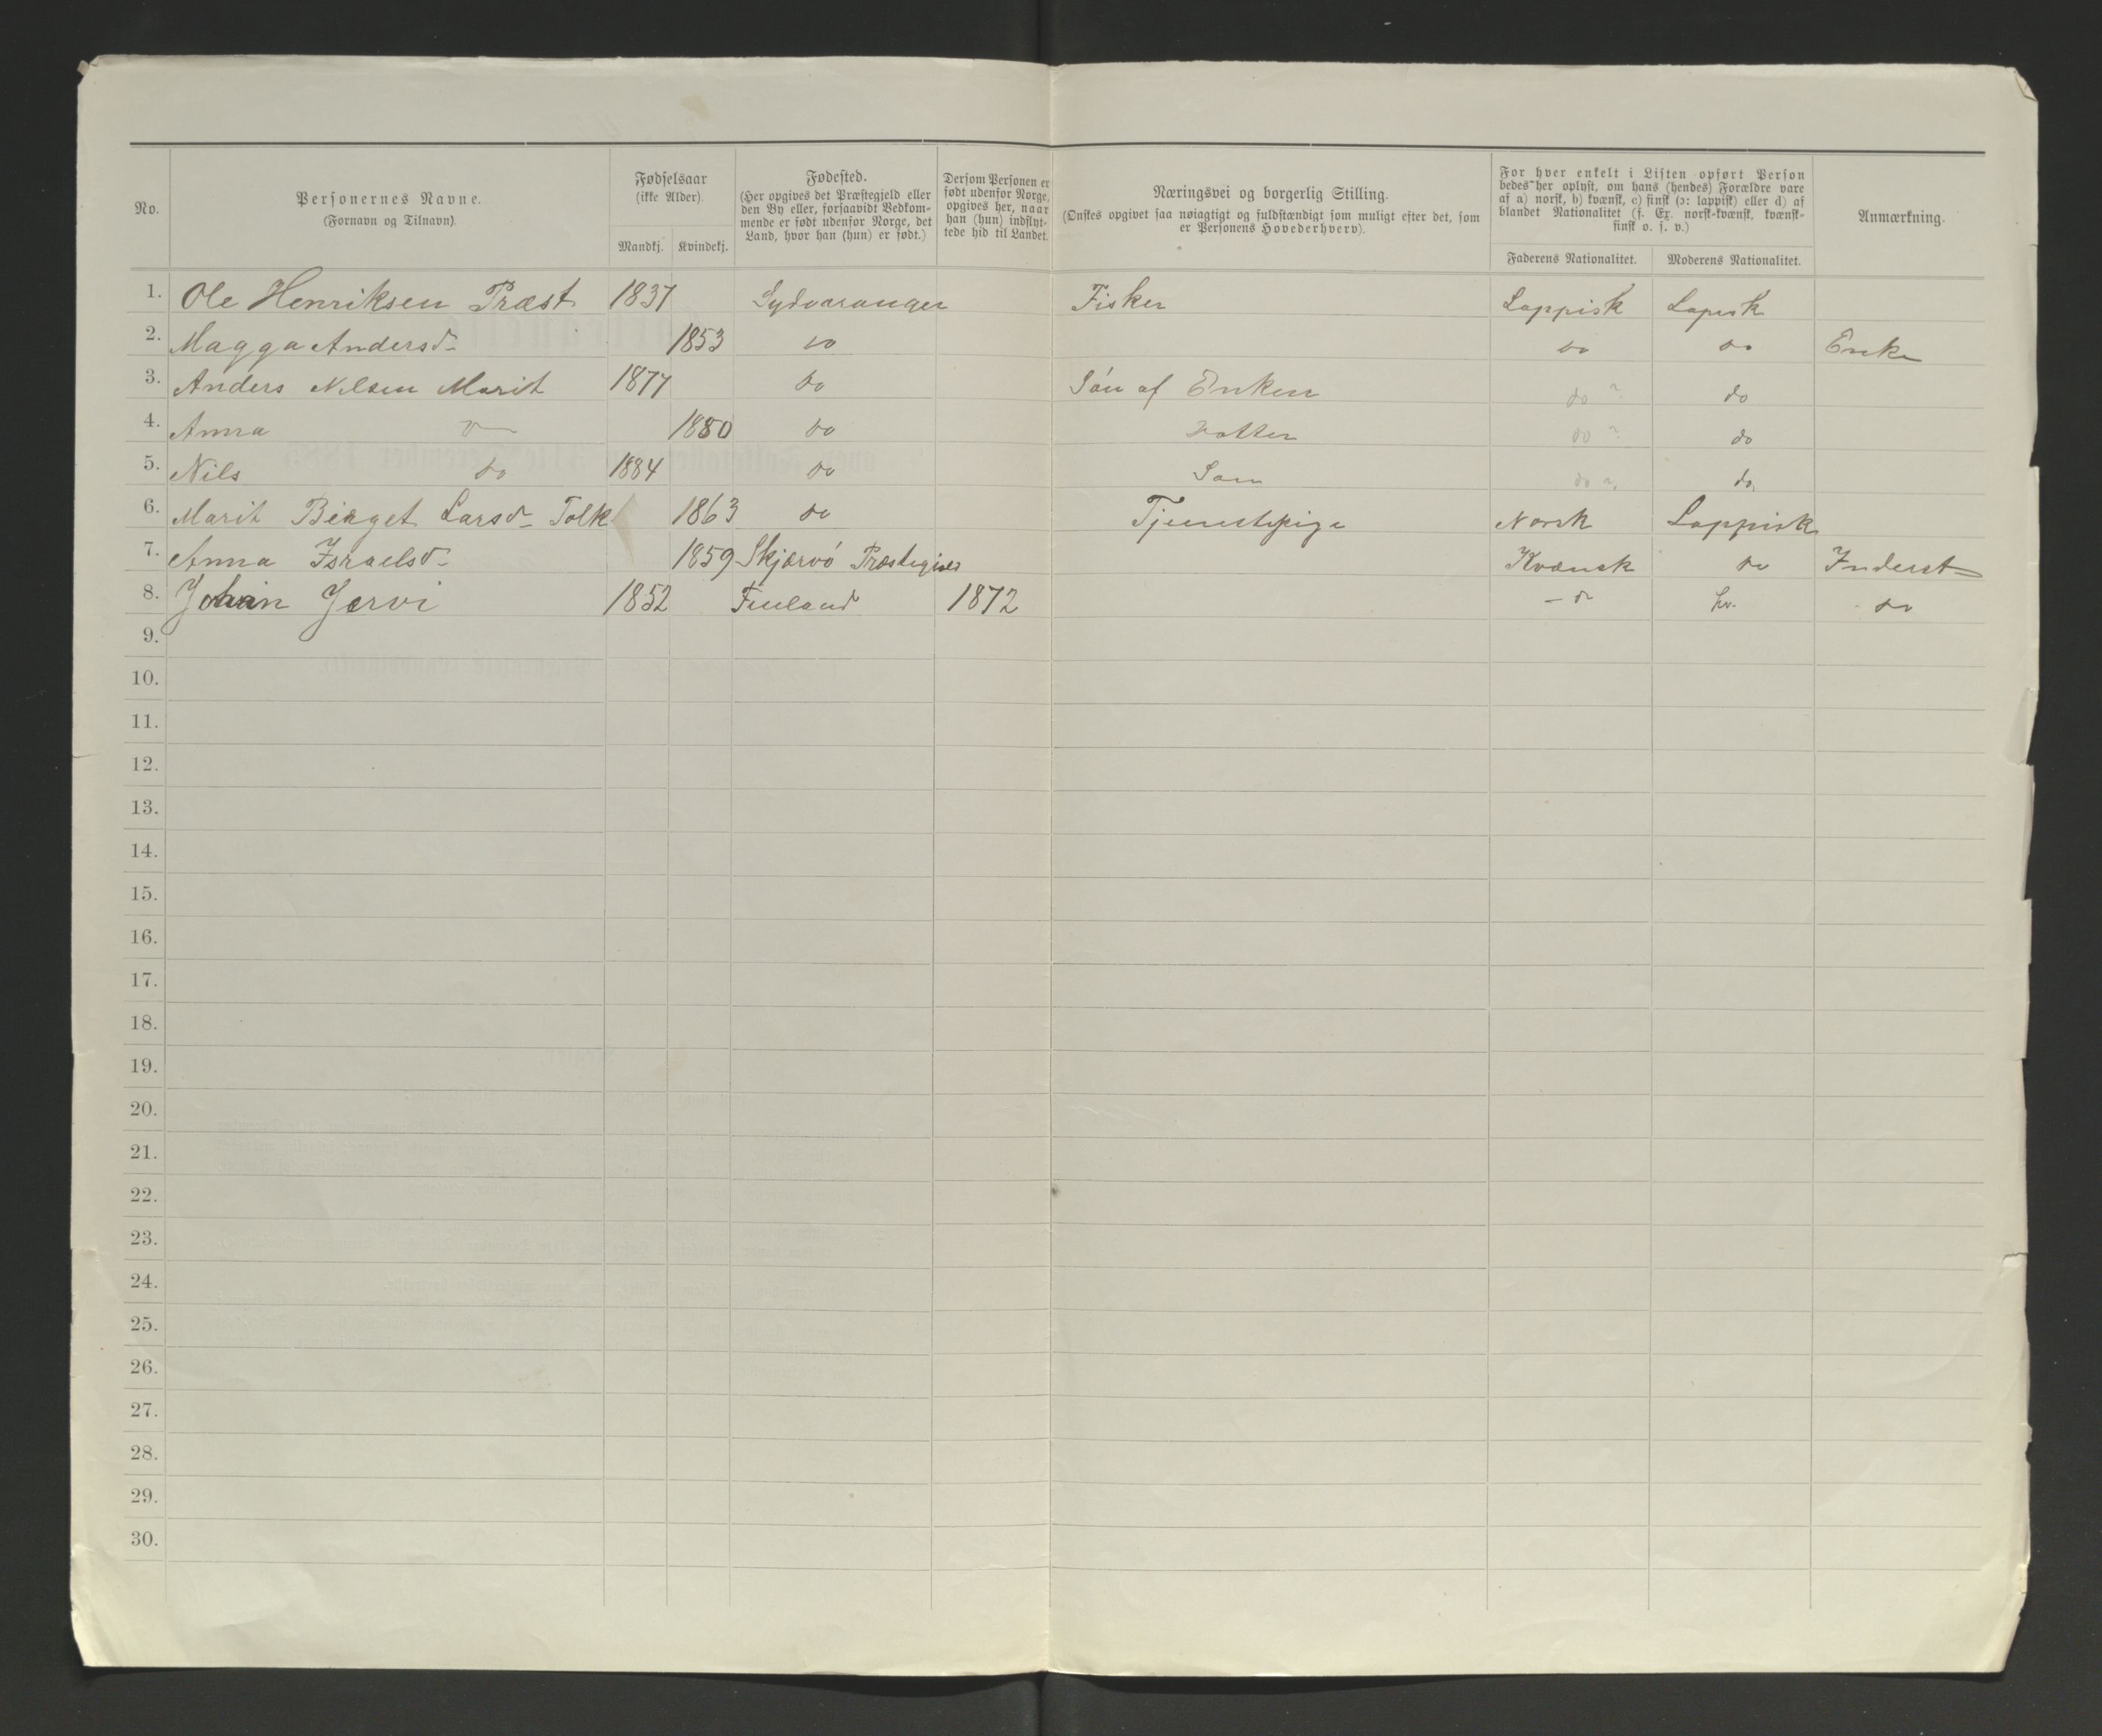 No.
Personernes Navne.
(Fornavn og Tilnavn).
Fødselsaar
(ikke Alder).
Mandkj. Kvindekj.
Fødested.
(Her opgives det Præstegjeld eller
den By eller, forsaavidt Vedkom-
mende er født udenfor Norge, det
Land, hvor han (hun) er født.)
Dersom Personen er
født udenfor Norge,
opgives her, naar
han (hun) indflyt-
tede hid til Landet.
Næringsvei og borgerlig Stilling.
(Ønskes opgivet saa nøiagtigt og fuldstændigt som muligt efter det, som
er Personens Hovederhverv).
For hver enkelt i Listen opført Person
bedes her oplyst, om hans (hendes) Forældre vare
af a) norsk, b) kvænsk, c) finsk (ɔ: lappisk) eller d) af
blandet Nationalitet (f. Ex. norsk-kvænsk, kvænsk-
finsk o. s. v.)
Faderens Nationalitet. Moderens Nationalitet.
Anmærkning.
1. Ole Henriksen Præst 1837 Sydvaranger Fisker Lappisk Lapisk
2. Magga Andersd. 1853 do do do Enke
3. Anders Nilsen Marit 1877 do Søn af Enken do ? do
4. Anna do 1880 do Datter do ? do
5. Nils do 1884 do Søn do ? do
6. Marit Birget Larsd. Tolk 1863 do Tjenestepige Norsk Lappisk
7. Anna Israelsd. 1859 Skjærvö Præstegjeld Kvænsk do Inderst
8. Johan Jervi 1852 Finland 1872 - do kv. do
9.
10.
11.
12.
13.
14.
15.
16.
17.
18.
19.
20.
21.
22.
23.
24.
25.
26.
27.
28.
29.
30.